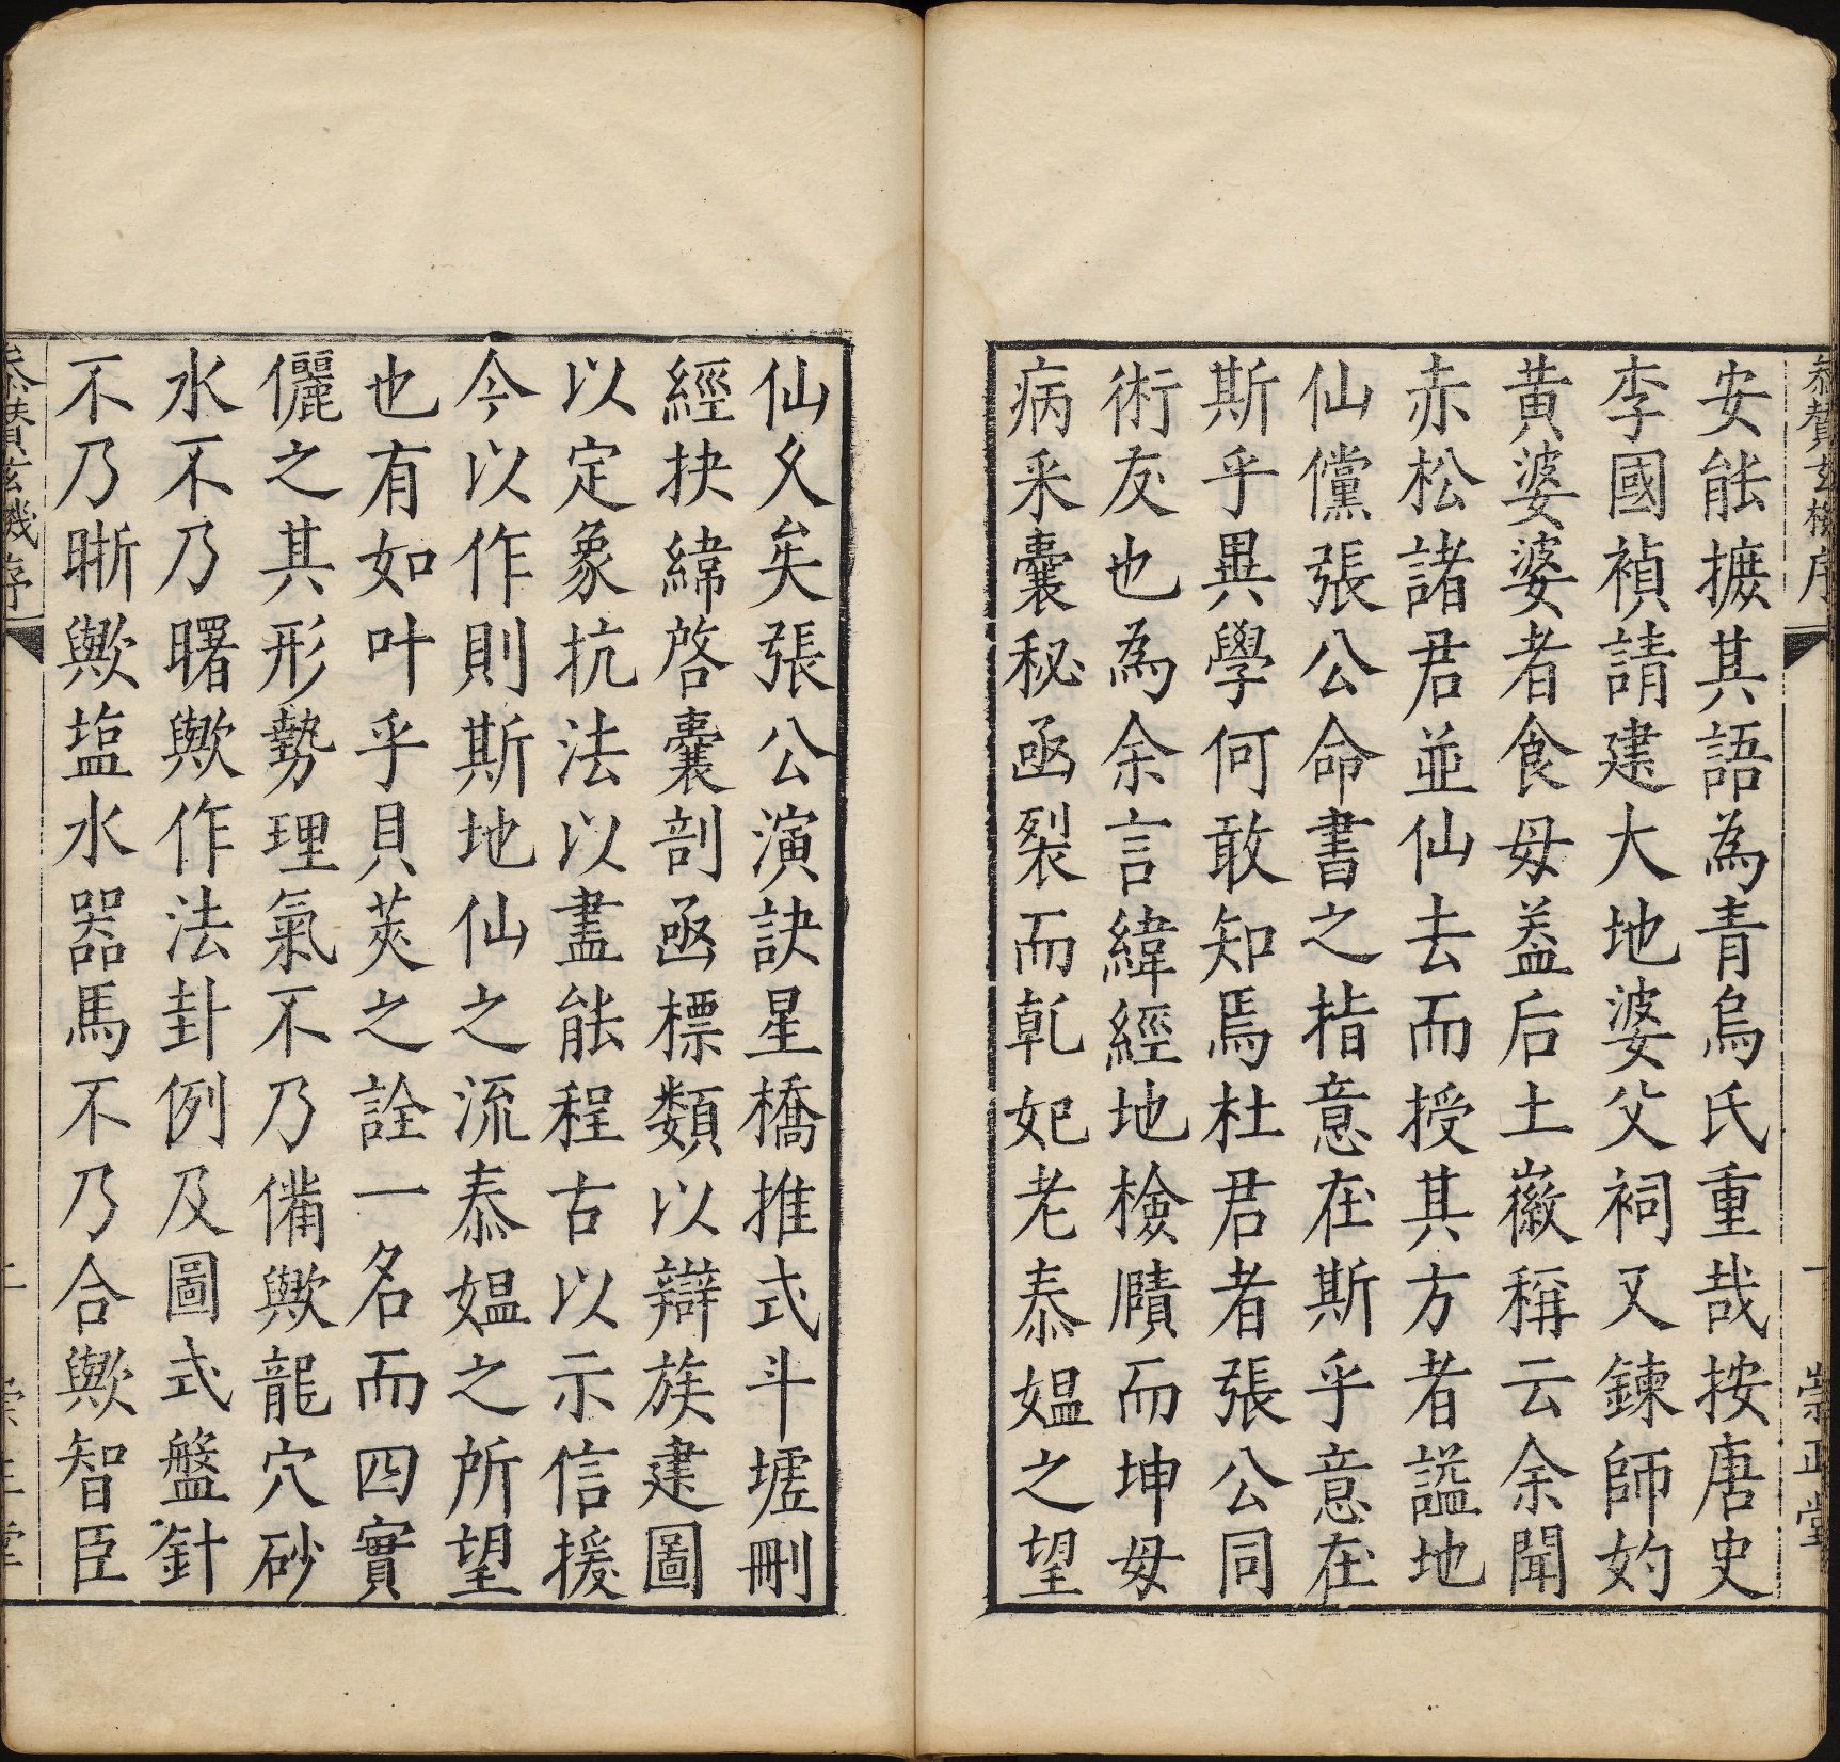 參贊玄機序
一
崇正堂
安能摭其語為青烏氏重哉按唐史
李國禎請建大地婆父祠又鍊師妁
黄婆婆者食母葢后土嶶稱云余聞
赤松諸君並仙去而授其方者謚地
仙儻張公命書之指意在斯乎意在
斯乎異學何敢知焉杜君者張公同
術友也為余言緯經地檢賾而坤母
病釆囊秘凾裂而乹妃老泰媪之望
仙久矣張公演訣星橋推式斗墟刪
經抉緯啓囊剖凾標類以辯族建圖
以定象抗法以盡能程古以示信援
今以作則斯地仙之流泰媪之所望
也有如叶乎貝莢之詮一名而四實
儷之其形勢理氣不乃備歟龍穴砂
水不乃曙歟作法卦例及圖式盤針
不乃晰歟塩水器馬不乃合歟智臣
參賛玄機序